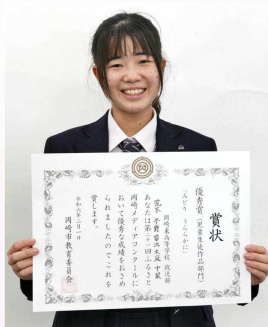 賞状
優秀賞(児童生徒作品部門)
「みどり うららかに」
岡崎東高等学校 放送部
あなたは第二十一回ふるさと
岡崎メディアコンクールに
おいて優秀な成績をおさめ
られましたのでこれを
賞します。
令和六年二月一日
岡崎市教育委員会